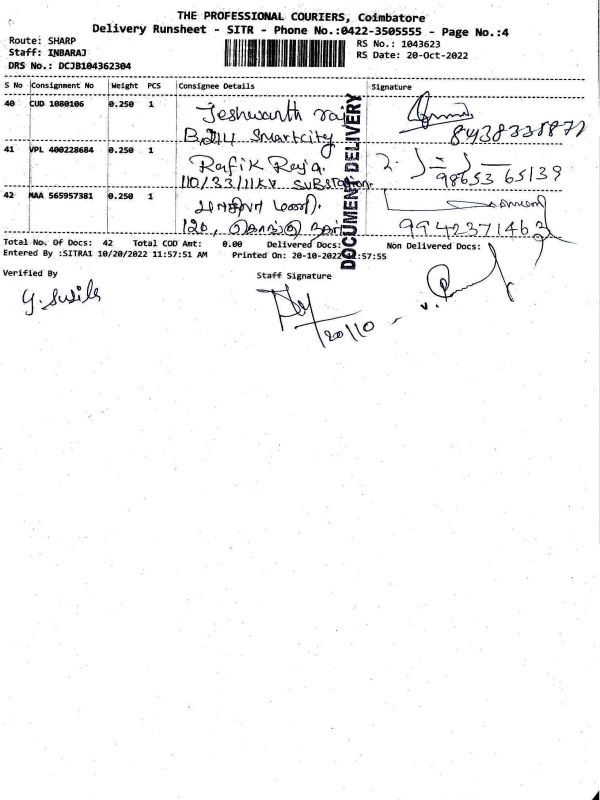 THE PROFESSIONAL COURIERS, Coimbatore
Delivery Runsheet - SITR - Phone No.:0422-3505555 - Page No.:4
Route: SHARP
Staff: INBARAJ
DRS No.: DCJB104362304
RS No.: 1043623
RS Date: 20-Oct-2022
S No Consignment No Weight PCS Consignee Details Signature
40 CUD 1080106 0.250 1 Jeshwanth raj
B,214 Smartcity
8438338877
41 VPL 400228684 0.250 1 Rafik Raja.
110/33/11KV SUBStation
98653 65139
42 MAA 565957381 0.250 1 மணி.
120,
9942371463
DOCUMENT DELIVERY
Total No. Of Docs: 42 Total COD Amt: 0.00 Delivered Docs: Non Delivered Docs:
Entered By :SITRA1 10/20/2022 11:57:51 AM Printed On: 20-10-2022 :57:55
Verified By Staff Signature
y. Susila
20/10